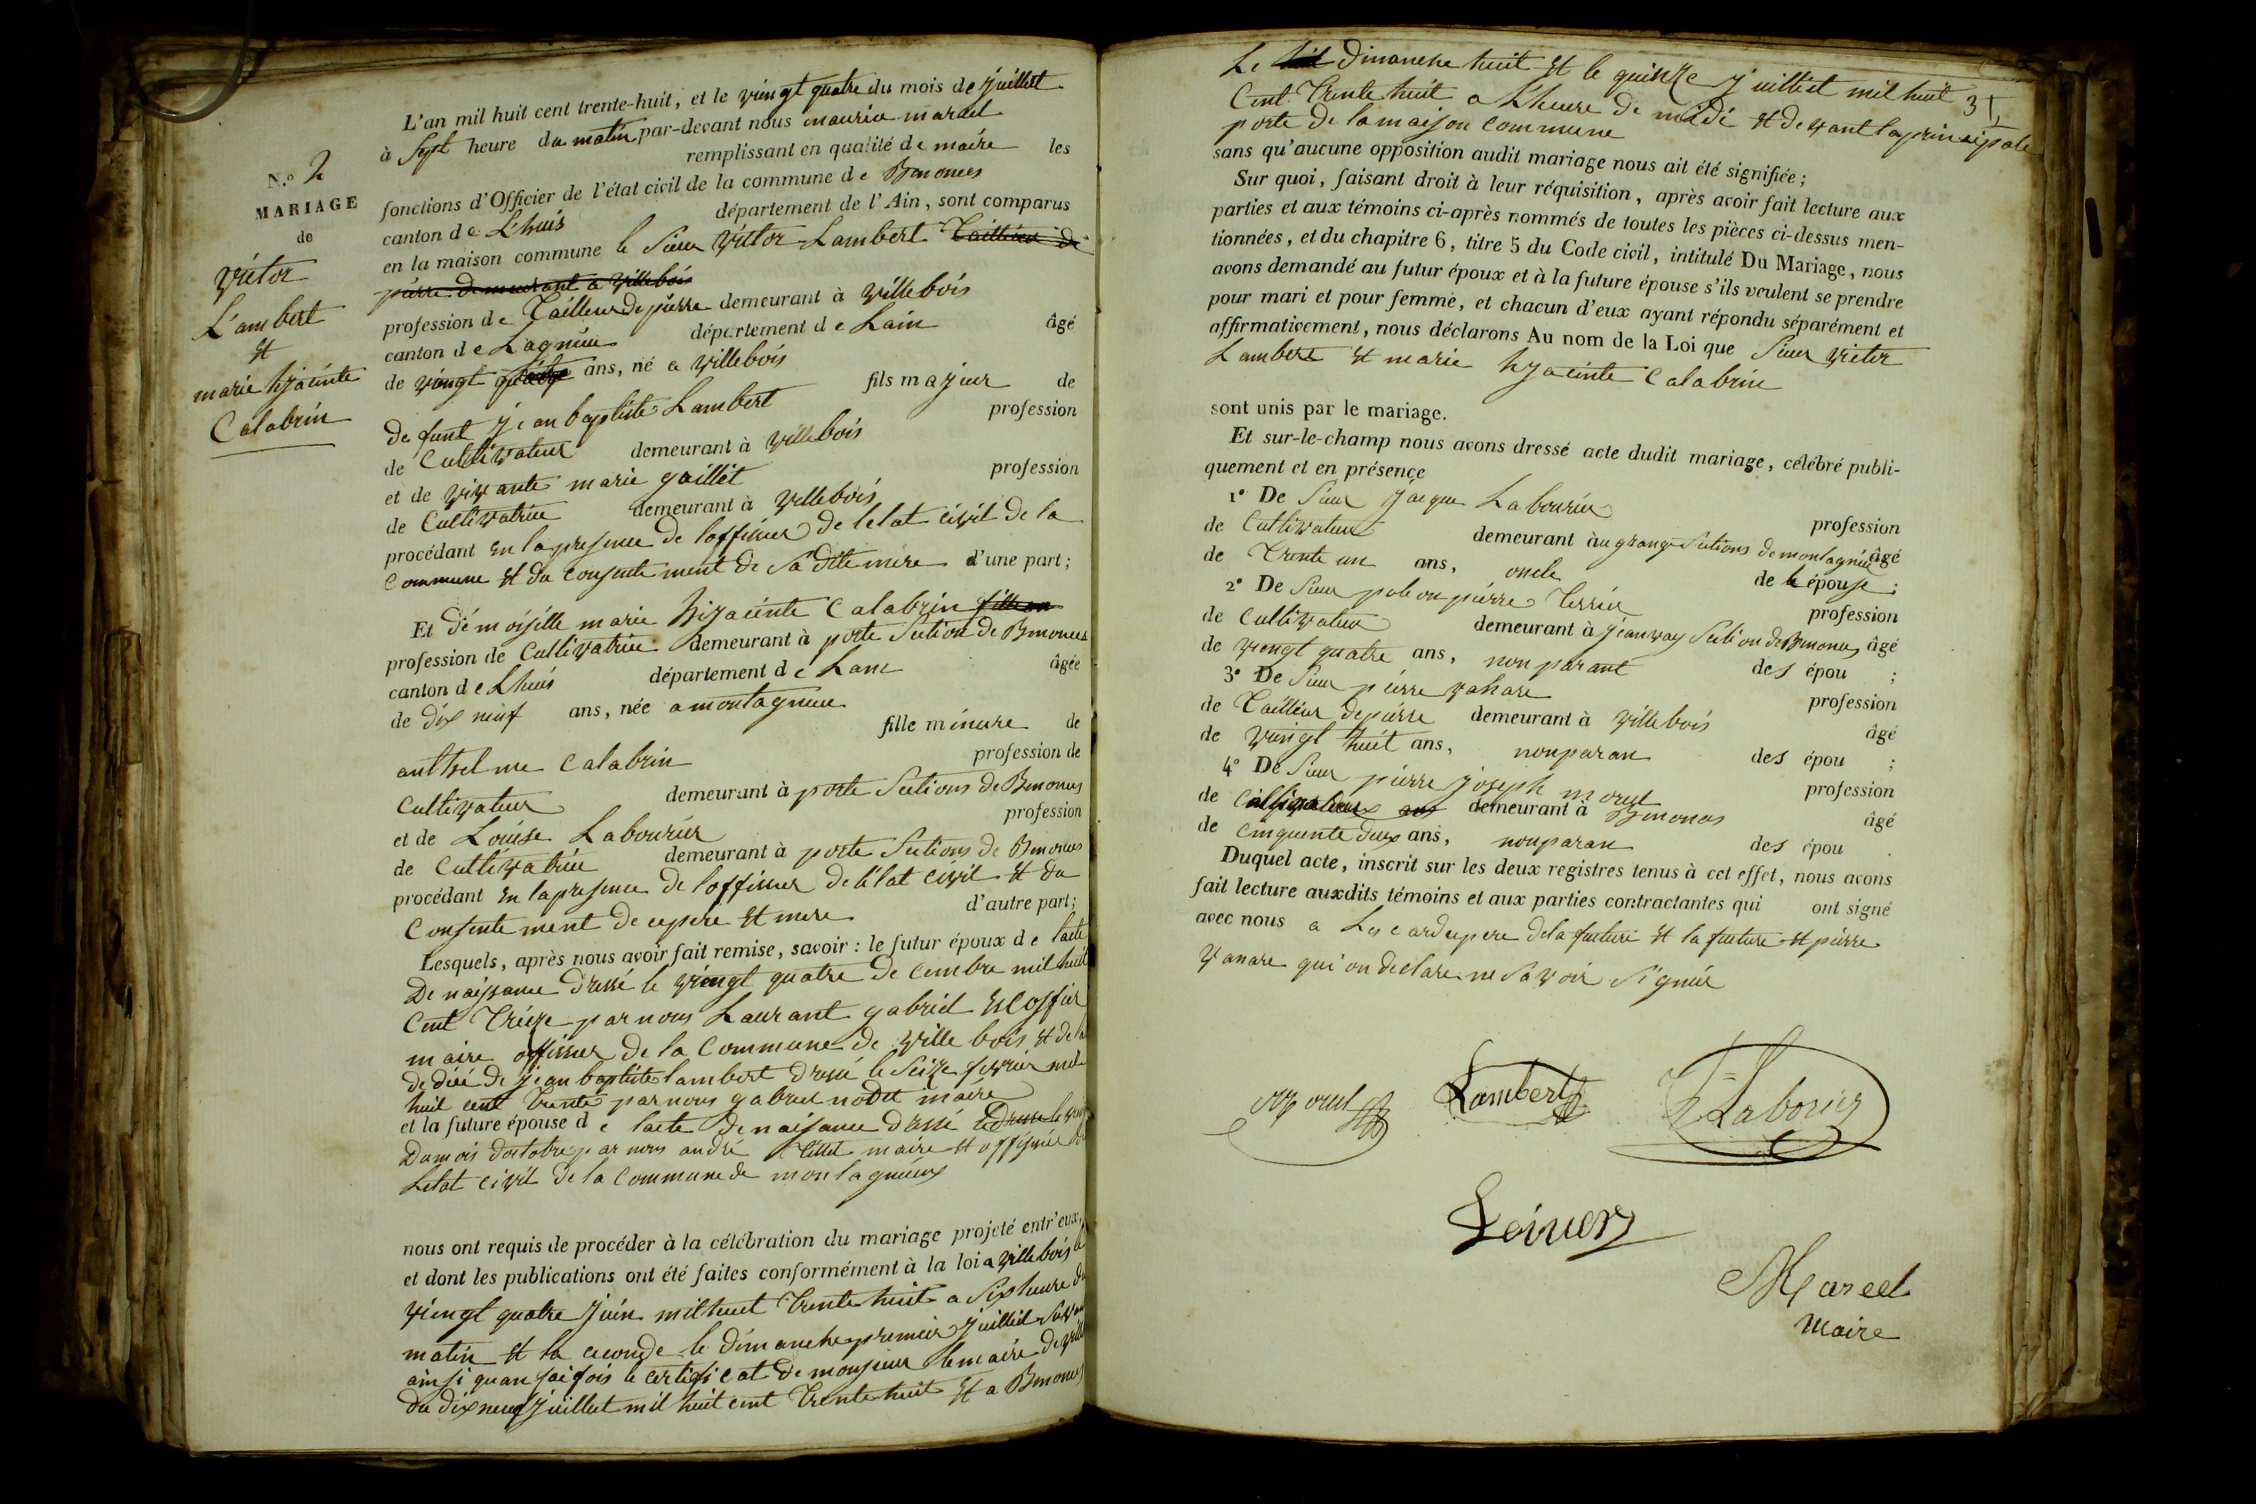 N.º 2
MARIAGE
de
victor
Lambert
et
marie hyacinte
Calabrin
L'an mil huit cent trente-huit, et le vingt quatre du mois de juillet
à Sept heure du matin par-devant nous maurice marcel
remplissant en qualité de maire les
fonctions d'Officier de l'état civil de la commune de Bmonces
canton de Lhuis département de l'Ain, sont comparus
en la maison commune le Sieur victor Lambert Tailleur de
pierre demeurant a villebois
profession de Tailleur de pierre demeurant à villebois
canton de Lagnieu département de Lain âgé
de vingt quatre ans, né a villebois
fils majeur de
defunt jean baptiste Lambert profession
de Cultivateur demeurant à villebois
et de vivante marie gaillet profession
de Cultivatrice demeurant à villebois
procédant en la presence de l'officier de letat civil de la
Commune et du consentement de sa dite mère d'une part;
Et démoiselle marie hiyacinte Calabrin
profession de Cultivatrice demeurant à porte Section de Bmonces
canton de Lhuis département de Lain âgée
de dix neuf ans, née a montagneux
fille mineure de
anthelme Calabrin profession de
Cultivateur demeurant à porte Sections de Bmonces
et de Louise Labourier profession
de Cultivatrice demeurant à porte Sections de Bmonces
procédant en la presence de l'officier de l'état civil et du
Consentement de ces pere et mere d'autre part;
Lesquels, après nous avoir fait remise, savoir: le futur époux de lacte
De naissance dressé le vingt quatre decembre mil huit
Cent treize par nous Laurant gabriel Escoffier
maire officier de la Commune de ville bois et de la
de dié de jean baptiste lambert dressé le Seize fevrier mil
huit cent trente par nous gabriel nodet maire
et la future épouse de lacte de naissance dressé
Du mois doctobre par nous andré maire et officier de
Letat civil de la Commune de montagneux
nous ont requis de procéder à la célébration du mariage projeté entr'eux,
et dont les publications ont été faites conformément à la loi a villebois le
vingt quatre juin mil huit trente huit a Six heure du
matin et la ceconde le dimanche premier juillet
ainsi quan fai fois le certificat de monsieur le maire de
du dix neuf juillet mil huit cent trente huit et a Bmonces
31
Le dimanche huit et le quinze juillet mil huit
Cent Trente huit a L'heure de midi et devant la principale
porte de la maison commune
sans qu'aucune opposition audit mariage nous ait été signifiée;
Sur quoi, faisant droit à leur réquisition, après avoir fait lecture aux
parties et aux témoins ci-après nommés de toutes les pièces ci-dessus men-
tionnées, et du chapitre 6, titre 5 du Code civil, intitulé Du Mariage, nous
avons demandé au futur époux et à la future épouse s'ils veulent se prendre
pour mari et pour femme, et chacun d'eux ayant répondu séparément et
affirmativement, nous déclarons Au nom de la Loi que Sieur victor
Lambert et marie hyacinte Calabrin
sont unis par le mariage.
Et sur-le-champ nous avons dressé acte dudit mariage, célébré publi-
quement et en présence
1º De Sieur jacque Labourier profession
de Cultivateur demeurant àu grange Sections de montagnieu âgé
de Trente un ans, oncle de le épouse;
2º De Sieur pierre Terrier profession
de Cultivateur demeurant à Section de Bmonces âgé
de vingt quatre ans, non parant des épou ;
3º De Sieur pierre vanare profession
de Tailleur de pierre demeurant à villebois âgé
de vingt huit ans, nonparan des épou ;
4º De Sieur pierre joseph morel profession
de demeurant à Bmonces âgé
de cinquente deux ans, nonparan des épou .
Duquel acte, inscrit sur les deux registres tenus à cet effet, nous avons
fait lecture auxdits témoins et aux parties contractantes qui ont signé
avec nous a pere dela future et la future et pierre
vanare qui on declare ne savoir signier
Lambert
Labourier
Marcel
maire